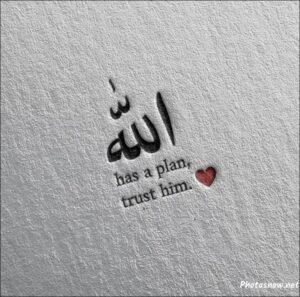 الله
has a plan,
trust him.
Photosnow.net